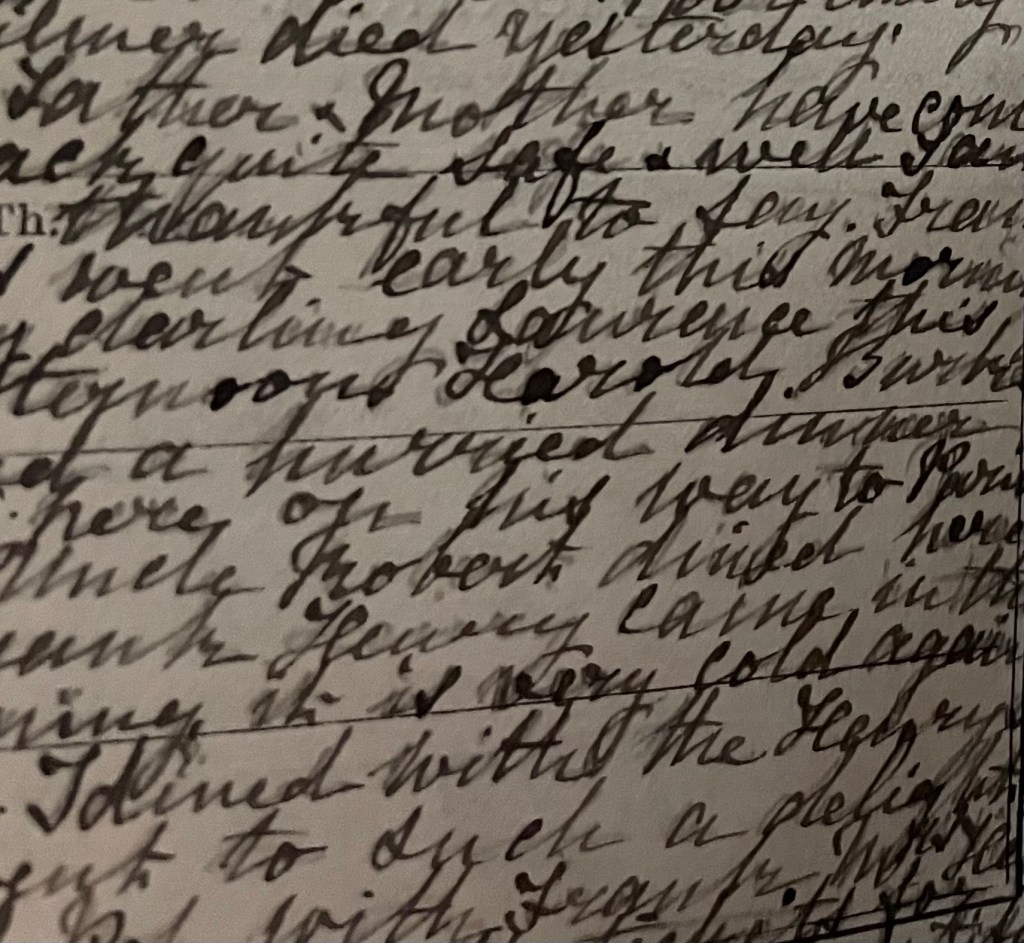 died yesterday.
Father & Mother have com
ack quite safe & well I am
Th. thankful to say. Fran
went early this morn
darling Lawrence this
fternoons Harold Burke
ed a hurried dinner
here on his way to Par
Uncle Robert dined here
Frank Henry came in th
ning it is very cold again
I dined with the Henry
ent to such a delight
with Frank. Mrs He
for